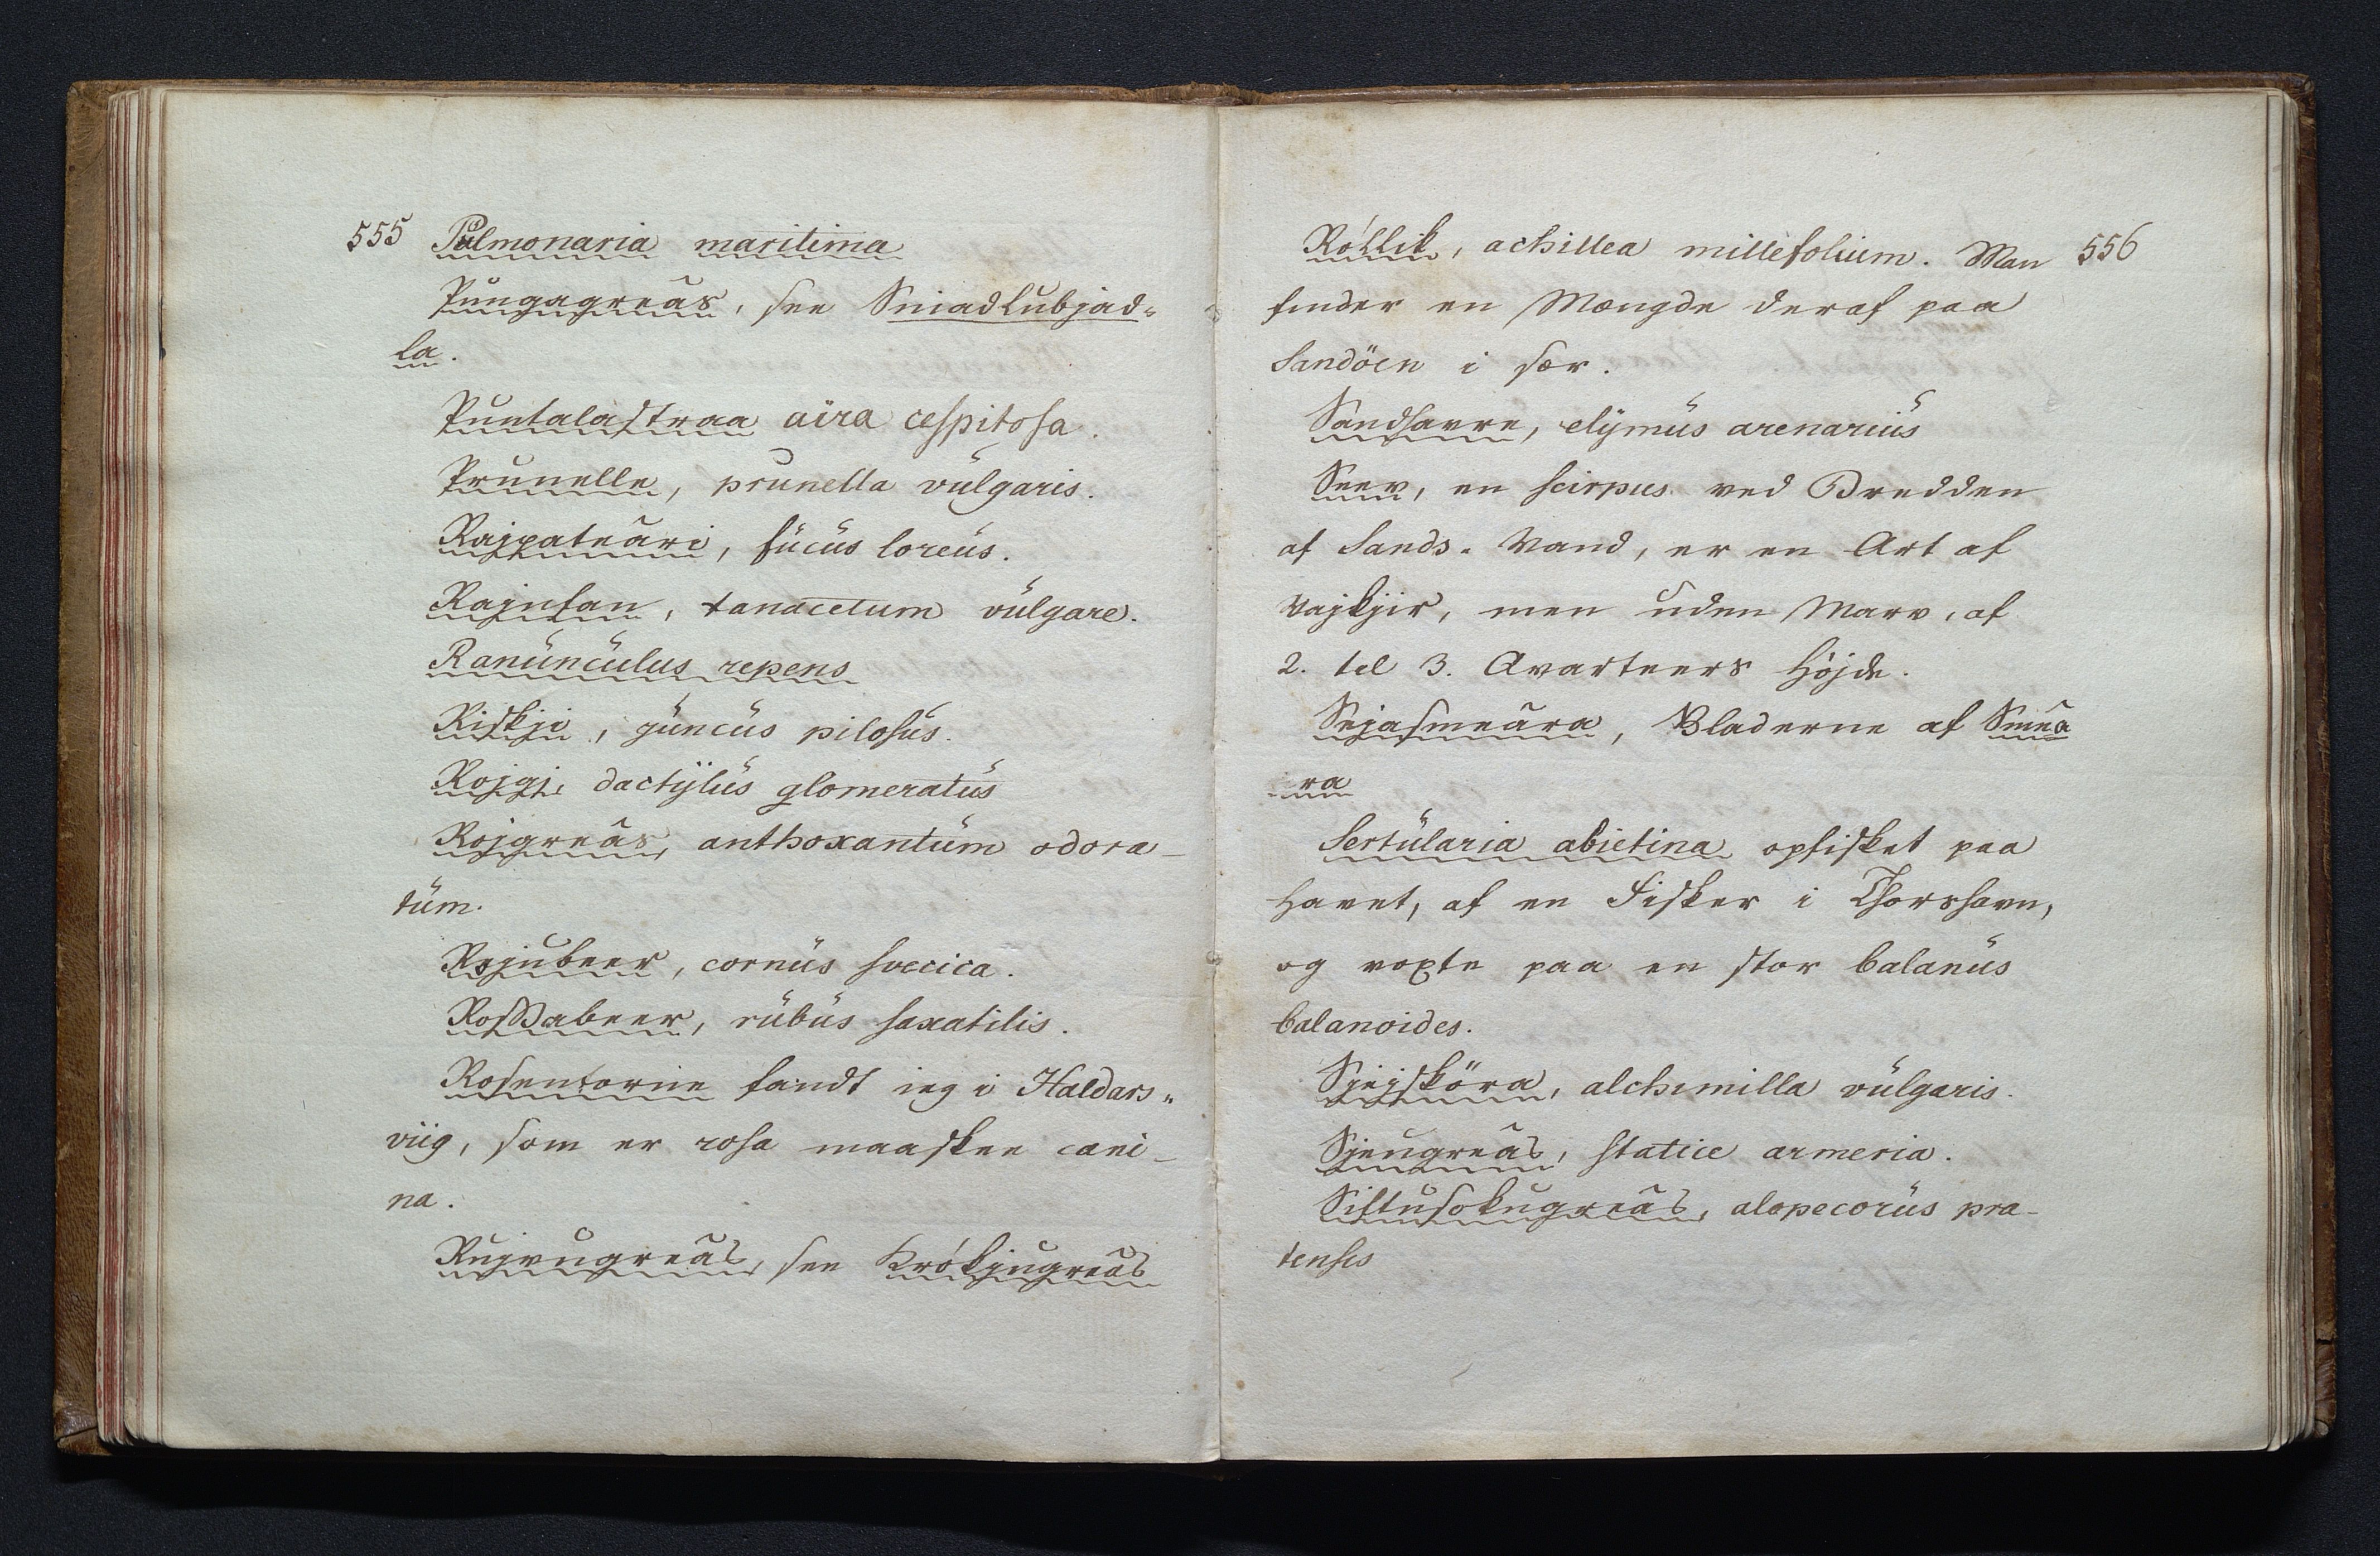 555 Pulmonaria maritima
Pungagreâs, see Sniadlubjad-
la.
Puntalastraa aira cespitosa.
Prunelle, prunella vulgaris.
Rajpateâri, fucus loreus.
Rajnfan, tanacetum vulgare.
Ranunculus repens
Riskji, juncus pilosus.
Rojgj, dactylus glomeratus
Rojgreâs, anthoxantum odora-
tum.
Rojubeer, cornus svecica.
Rossabeer, rubus saxatilis.
Rosentorne fandt ieg i Haldars-
viig, som er rosa maaskee cani-
na.
Rujvugreâs, see Krókjugreâs
Róllik, achillea millefolium. Man 556
finder en Mængde deraf paa
Sandöen i sær.
Sandhavre, elymus arenarius
Seev, en scirpus ved Bredden
af Sands-Vand, er en Art af
Vajkjir, men uden Marv, af
2. til 3. Qvarteers Höjde.
Sejasmeâra, Bladerne af Smeâ
ra
Sertularia abietina opfisket paa
Havet, af en Fisker i Thorshavn,
og voxte paa en stor balanus
balanoides.
Sjejsköra, alchimilla vulgaris.
Sjeugreâs, statice armeria.
Siltusokugreâs, alopecorus pra-
tensis